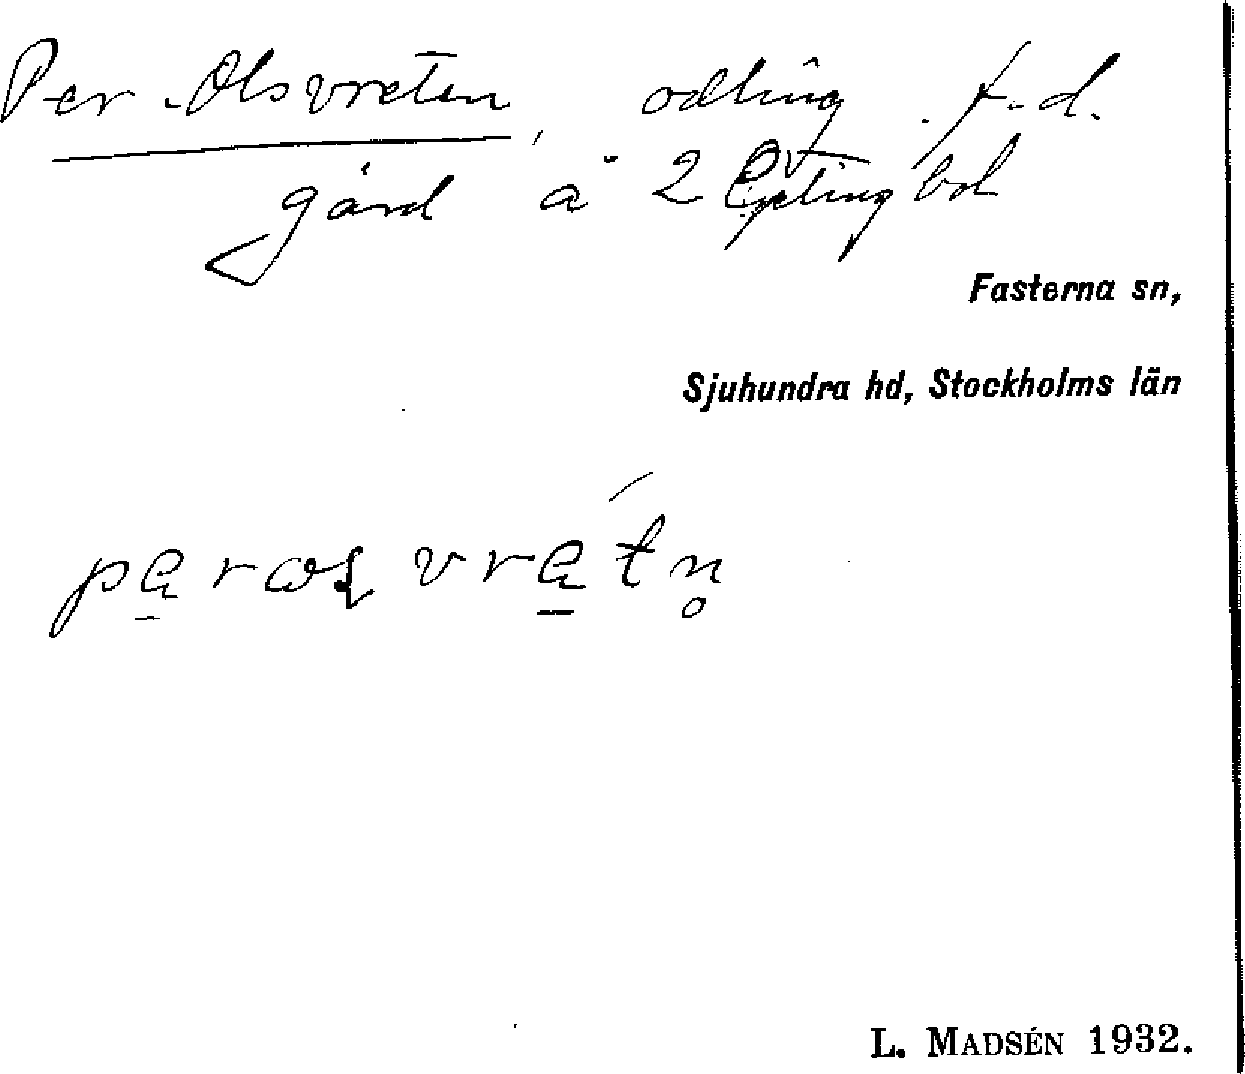 Per-Olsvreten, odling f.d.
gård å 2
Fasterna sn,
Sjuhundra hd, Stockholms län
L. MADSÉN 1932.